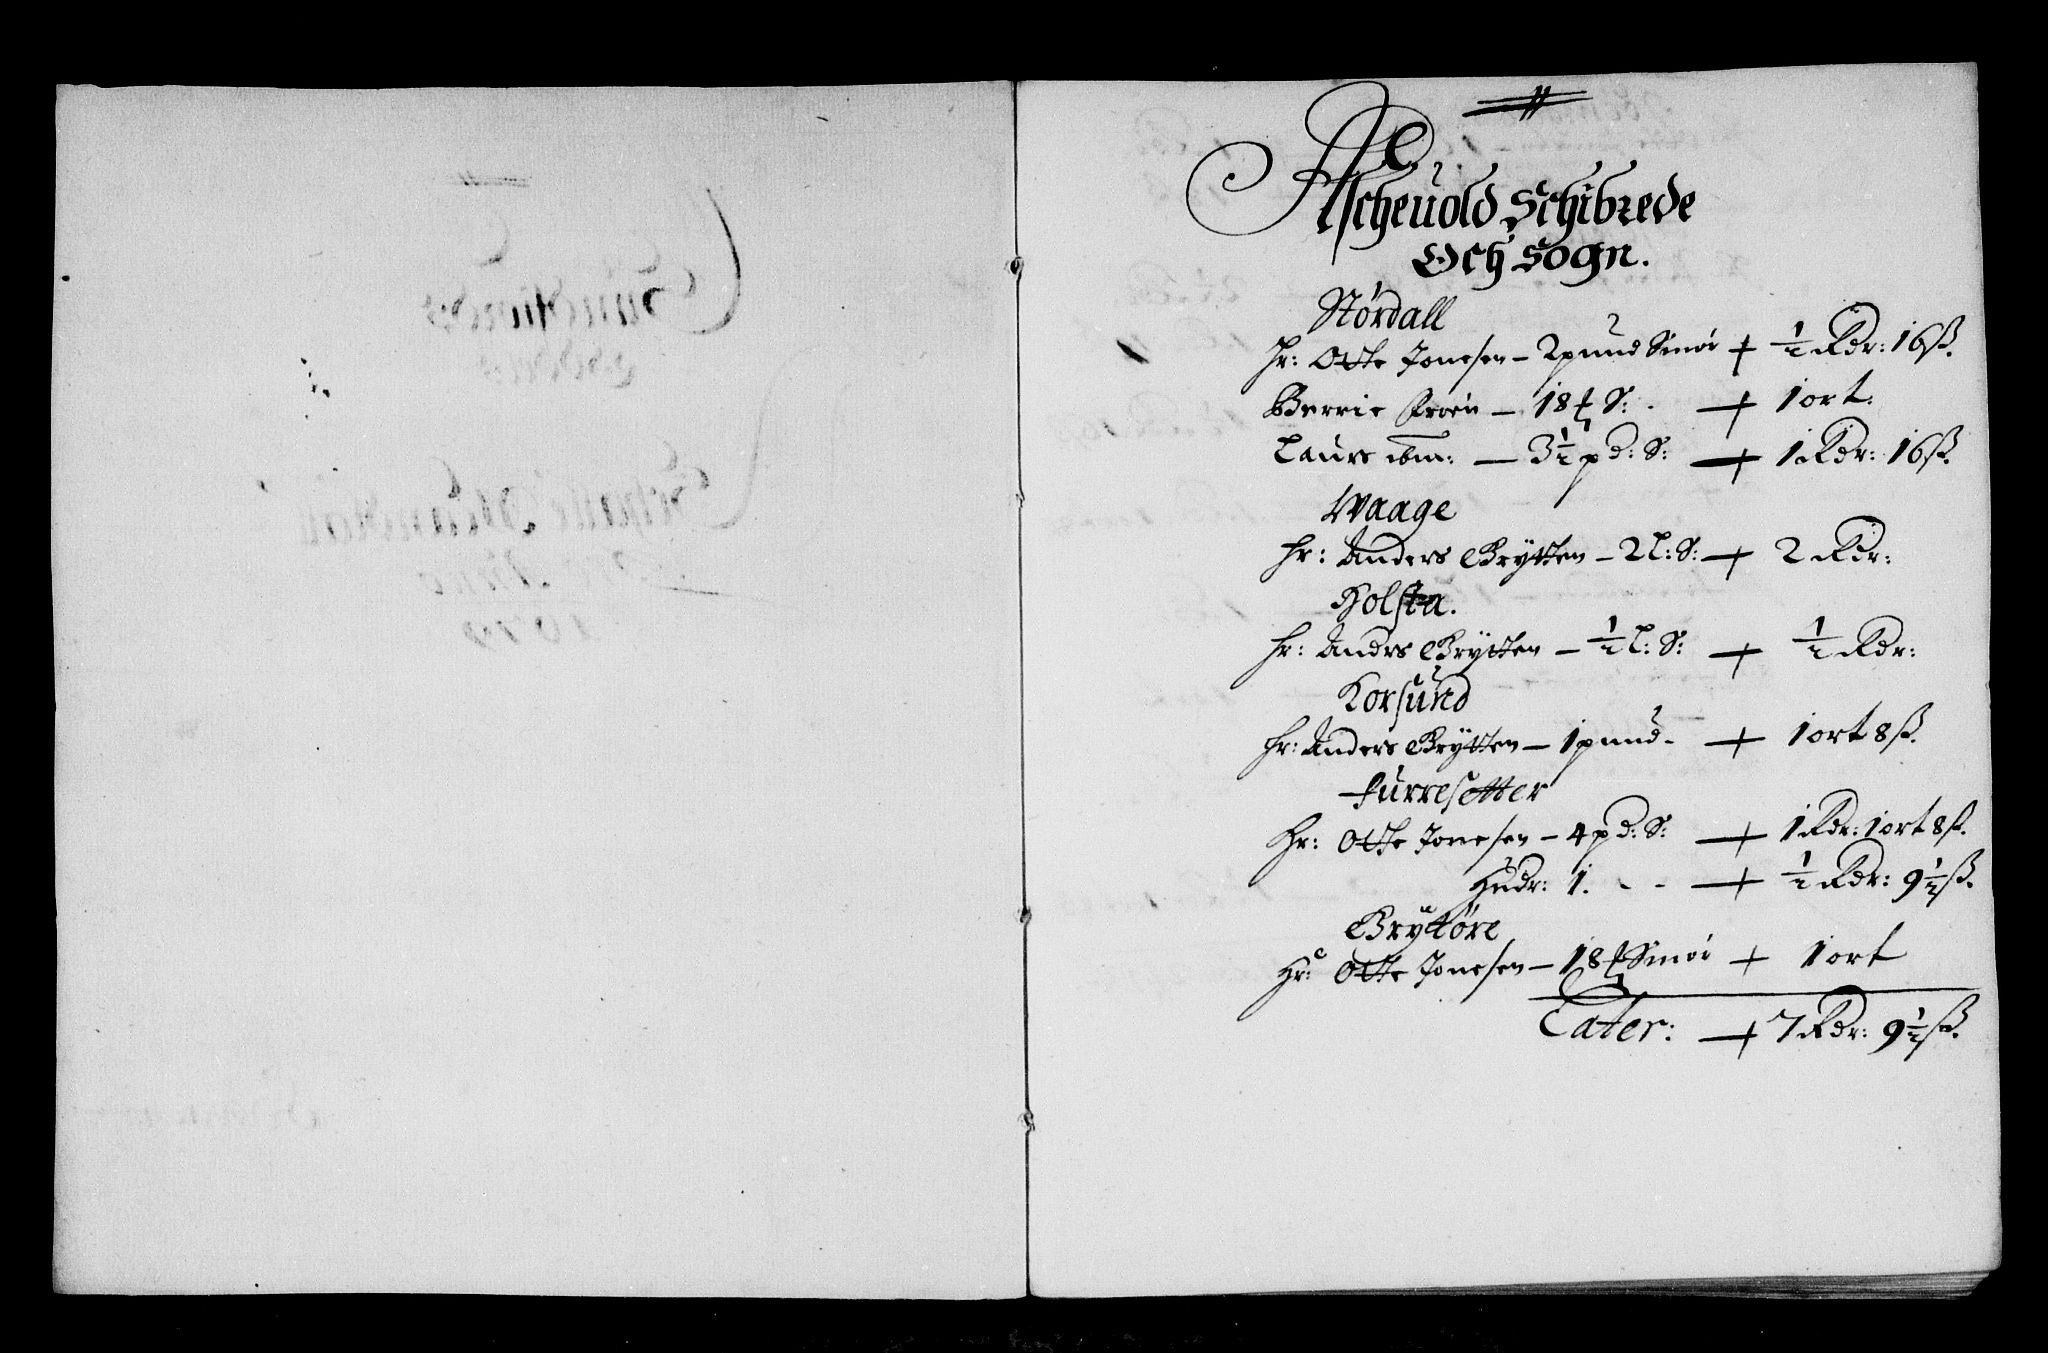 Ascheuold Schibrede
Och Sogn.
Nørdall
Hr: Otte Jonesen – 2 pund Smør + ½ Rdr: 16 ß.
Berrie – 18 ℔ S: + 1 ort:
Laurs ibm: — 3½ pd: S: + 1 Rdr: 16 ß.
Waage
Hr: Anders Brytten – 2 L: S: + 2 Rdr:
Holsta.
Hr: Anders Brytten – ½ L: S: + ½ Rdr:
Korsund
Hr: Anders Brytten – 1 pund – + 1 ort 8 ß.
Furresetter
Hr: Otte Jonesen – 4 pd: S: + 1 Rdr: 1 ort 8 ß.
Hudr: 1. - - + ½ Rdr: 9½ ß.
Brytøre
Hr: Otte Jonesen – 18 ℔ Smør + 1 ort
Later: + 7 Rdr: 9½ ß.